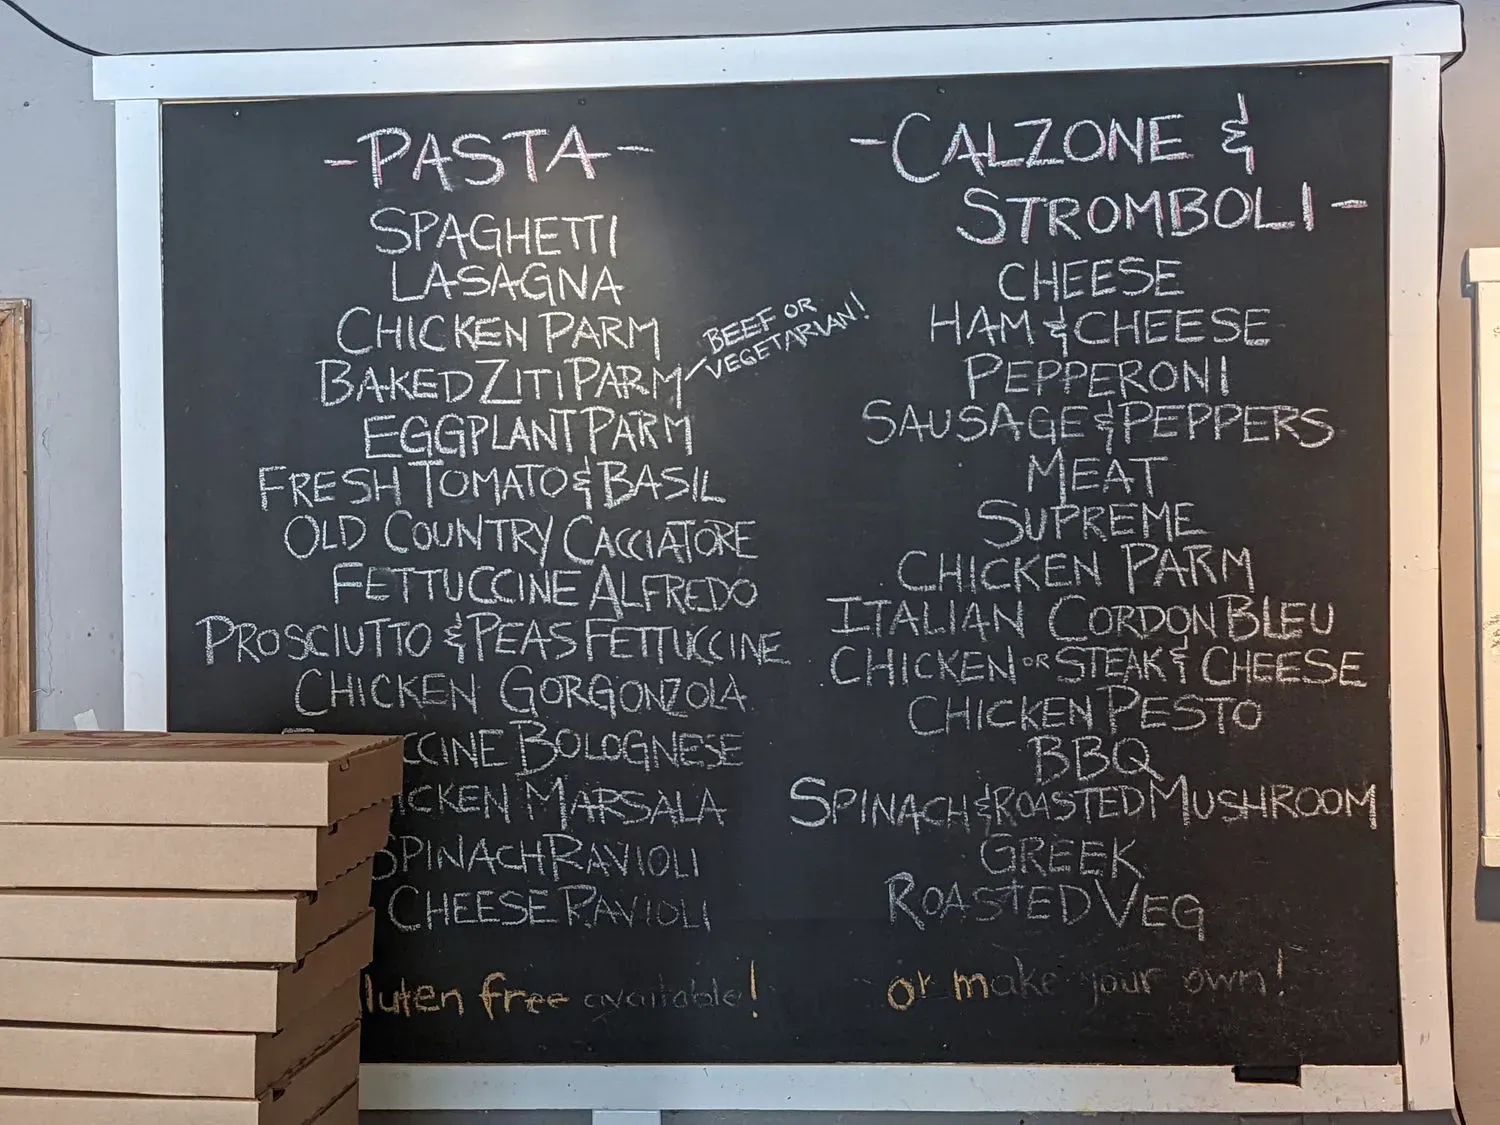 -PASTA-
SPAGHETTI
LASAGNA
CHICKEN PARM
BAKED ZITI PARM
BEEF OR
VEGETARIAN!
EGGPLANT PARM
FRESH TOMATO & BASIL
OLD COUNTRY CACCIATORE
FETTUCCINE ALFREDO
PROSCIUTTO & PEAS FETTUCCINE
CHICKEN GORGONZOLA
CCINE BOLOGNESE
ICKEN MARSALA
SPINACH RAVIOLI
CHEESE RAVIOLI
luten free available!
-CALZONE &
STROMBOLI-
CHEESE
HAM & CHEESE
PEPPERONI
SAUSAGE & PEPPERS
MEAT
SUPREME
CHICKEN PARM
ITALIAN CORDON BLEU
CHICKEN OR STEAK & CHEESE
CHICKEN PESTO
BBQ
SPINACH & ROASTED MUSHROOM
GREEK
ROASTED VEG
or make your own!
PIZZA